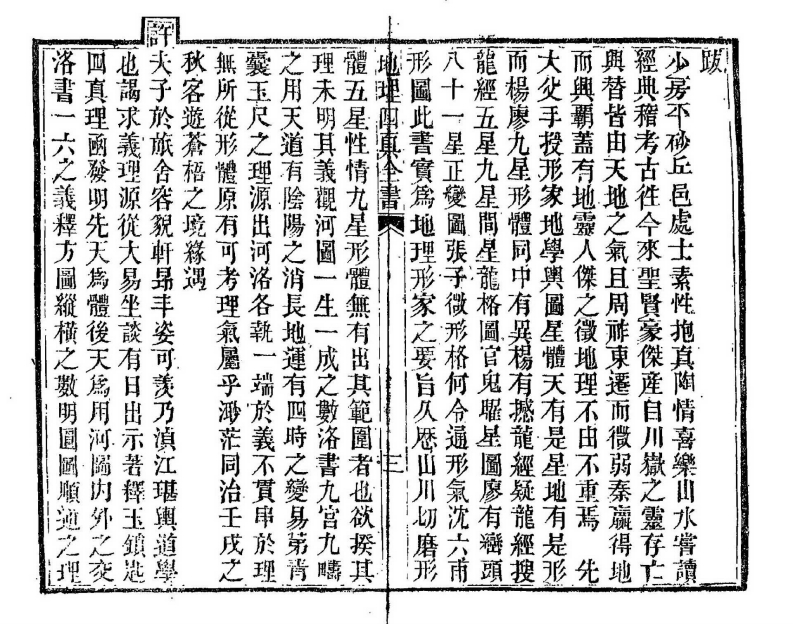 跋
少房不砂丘邑處士素性抱真陶情喜樂山水嘗讀
經典稽考古徃今來聖賢豪傑産自川嶽之靈存亡
興替皆由天地之氣且周祚東遷而微弱秦嬴得地
而興霸蓋有地靈人傑之徵地理不由不重焉　先
大父手授形家地學輿圖星體天有是星地有是形
而楊廖九星形體同中有異楊有撼龍經疑龍經搜
龍經五星九星間星龍格圖官鬼曜星圖廖有巒頭
八十一星正變圖張子微形格何令通形氣沈六甫
形圖此書實爲地理形家之要旨久厯山川切磨形
地理四真全書　三
體五星性情九星形體無有出其範圍者也欲揆其
理未明其義觀河圖一生一成之數洛書九宮九疇
之用天道有陰陽之消長地運有四時之變易第青
囊玉尺之理源出河洛各執一端於義不貫串於理
無所從形體原有可考理氣屬乎渺茫同治壬戌之
秋客遊蒼梧之境緣遇
許夫子於旅舍容貌軒昂丰姿可羨乃滇江堪輿道學
也謁求義理源從大易坐談有日出示著釋玉鎖匙
四真理函發明先天爲體後天爲用河圖內外之交
洛書一六之義釋方圖縱橫之數明圓圖順逆之理